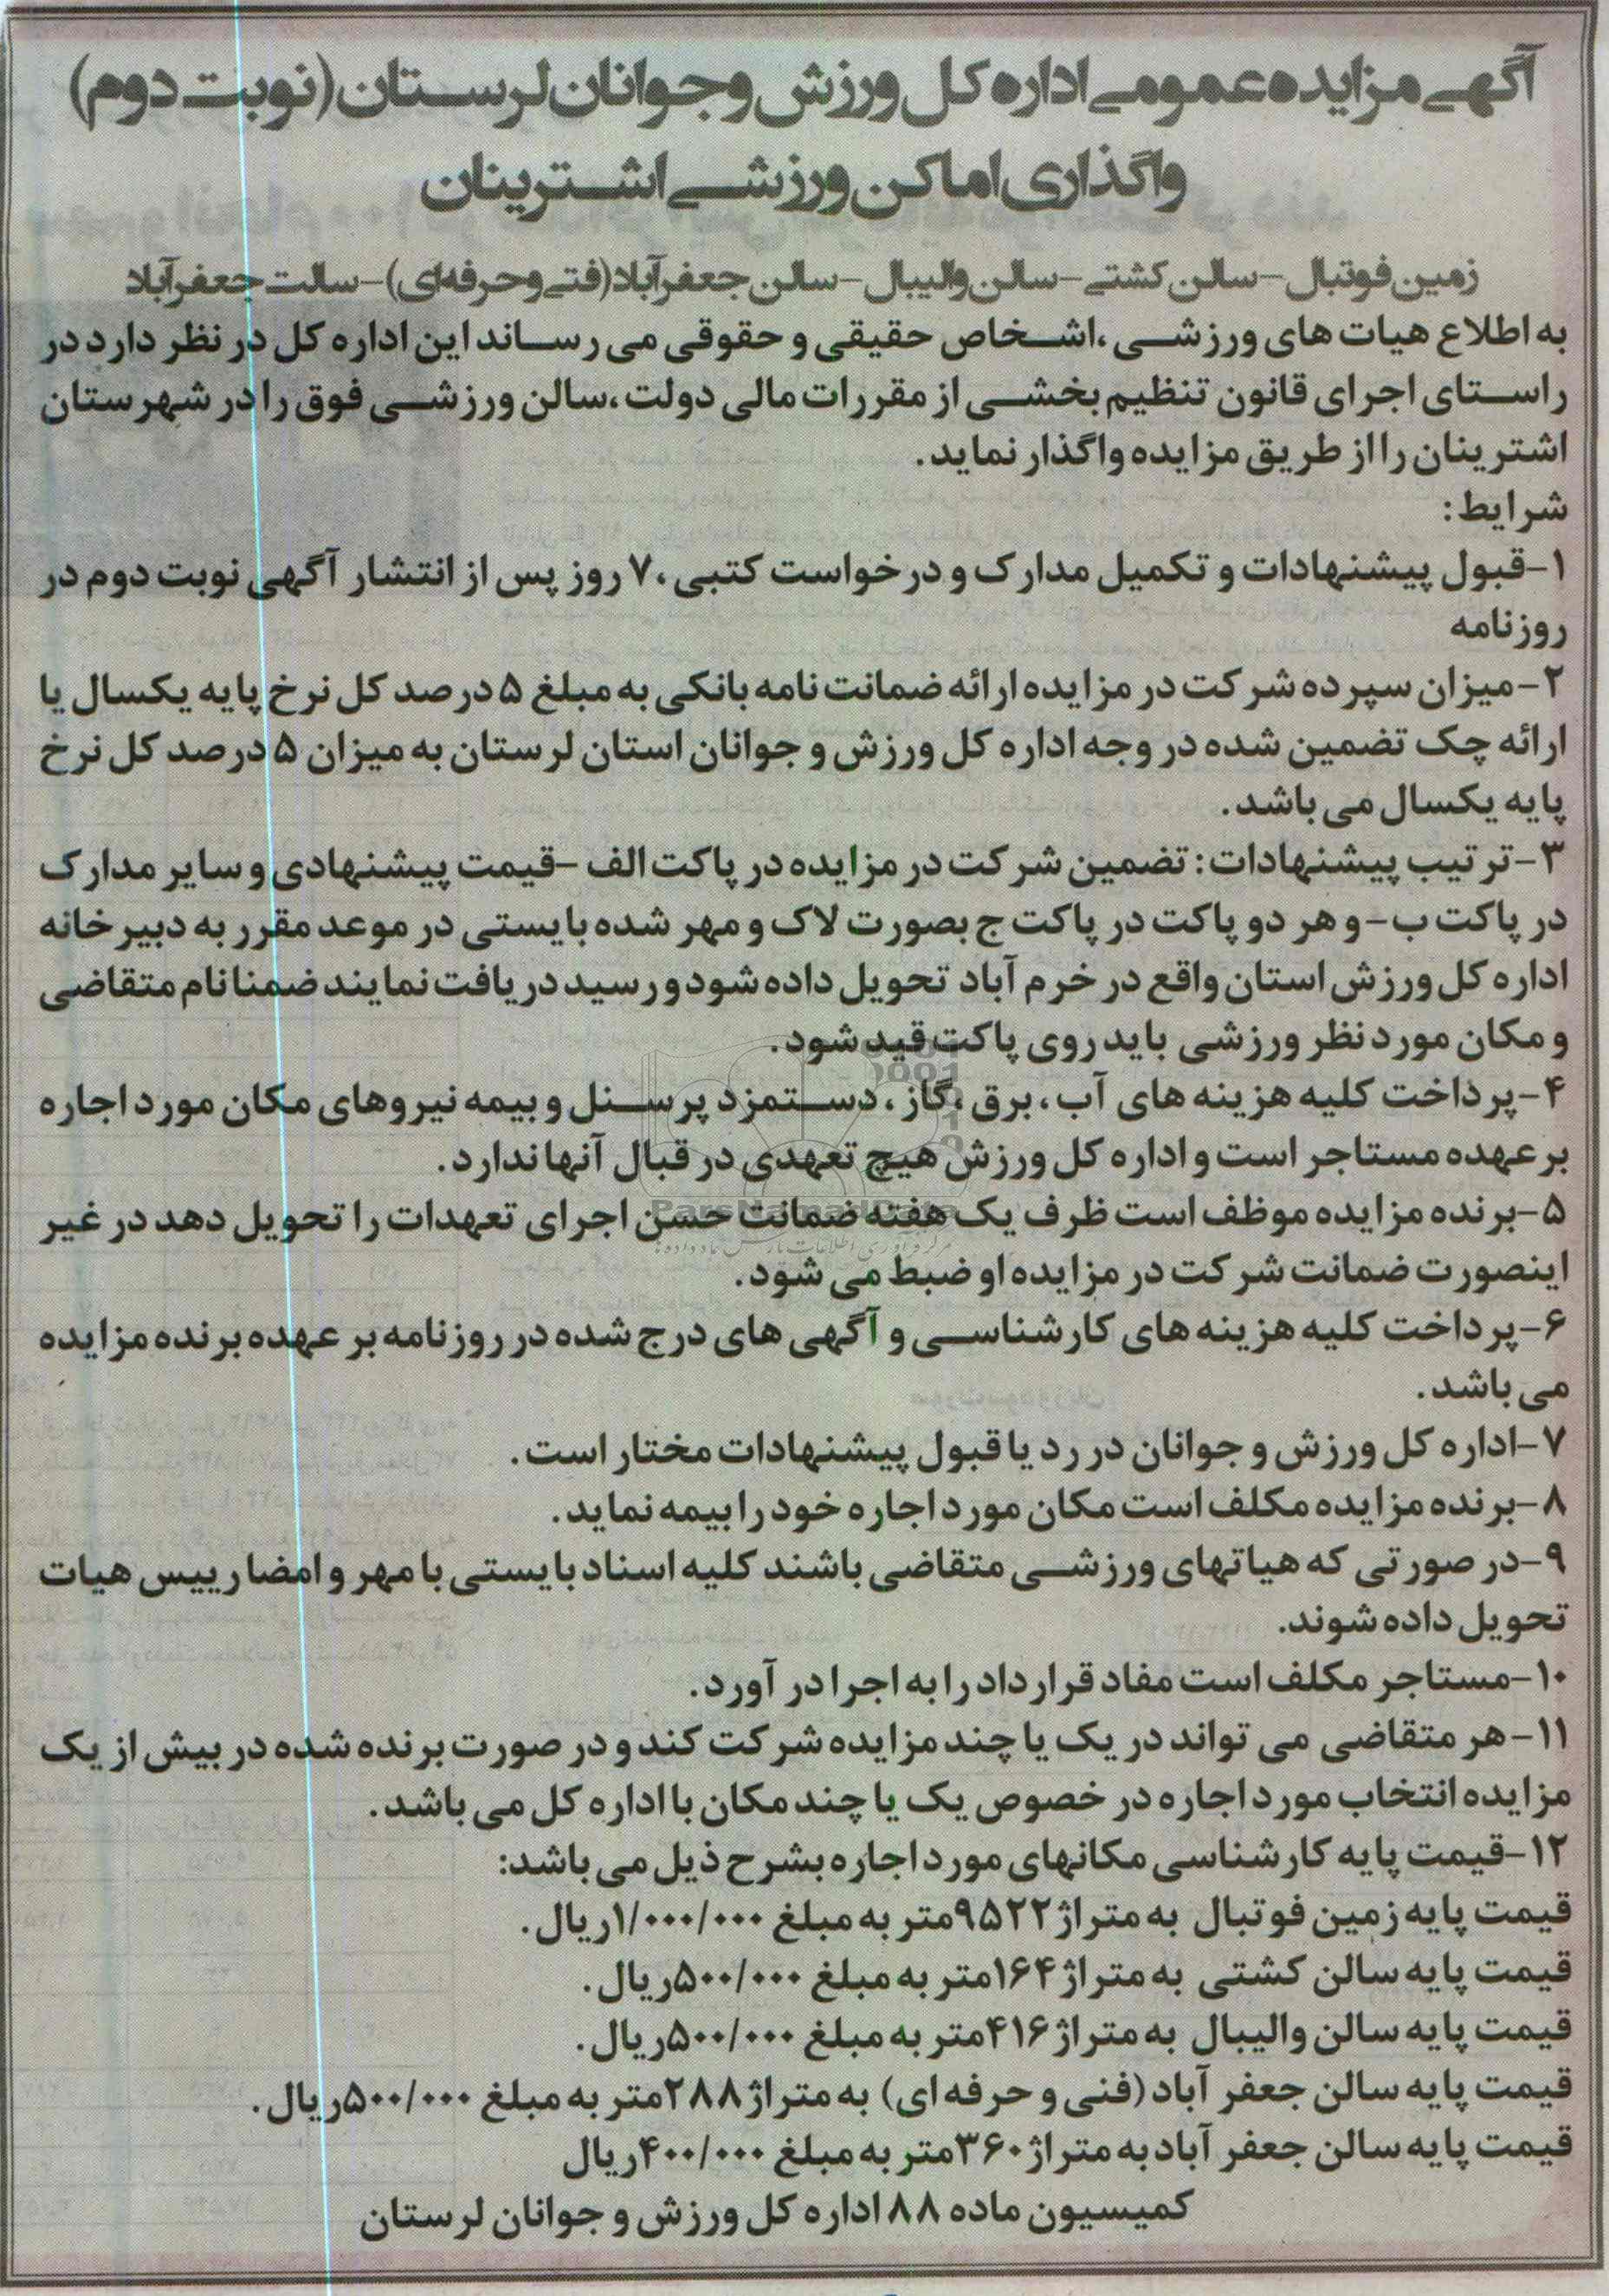 آگهی مزایده عمومی اداره کل ورزش و جوانان لرستان (نوبت دوم)
واگذاری اماکن ورزشی اشترینان
زمین فوتبال - سالن کشتی - سالن والیبال - سالن جعفرآباد (فنی و حرفه‌ای) - سالت جعفرآباد
به اطلاع هیات های ورزشی ،اشخاص حقیقی و حقوقی می رساند این اداره کل در نظر دارد در
راستای اجرای قانون تنظیم بخشی از مقررات مالی دولت ،سالن ورزشی فوق را در شهرستان
اشترینان را از طریق مزایده واگذار نماید.
شرایط:
۱-قبول پیشنهادات و تکمیل مدارک و درخواست کتبی ،۷ روز پس از انتشار آگهی نوبت دوم در
روزنامه
۲-میزان سپرده شرکت در مزایده ارائه ضمانت نامه بانکی به مبلغ ۵ درصد کل نرخ پایه یکسال یا
ارائه چک تضمین شده در وجه اداره کل ورزش و جوانان استان لرستان به میزان ۵ درصد کل نرخ
پایه یکسال می باشد.
۳-ترتیب پیشنهادات: تضمین شرکت در مزایده در پاکت الف -قیمت پیشنهادی و سایر مدارک
در پاکت ب- و هر دو پاکت در پاکت ج بصورت لاک و مهر شده بایستی در موعد مقرر به دبیرخانه
اداره کل ورزش استان واقع در خرم آباد تحویل داده شود و رسید دریافت نمایند ضمنا نام متقاضی
و مکان مورد نظر ورزشی باید روی پاکت قید شود.
۴-پرداخت کلیه هزینه های آب، برق ،گاز، دستمزد پرسنل و بیمه نیروهای مکان مورد اجاره
بر عهده مستاجر است و اداره کل ورزش هیچ تعهدی در قبال آنها ندارد.
۵-برنده مزایده موظف است ظرف یک هفته ضمانت حسن اجرای تعهدات را تحویل دهد در غیر
اینصورت ضمانت شرکت در مزایده او ضبط می شود.
۶-پرداخت کلیه هزینه های کارشناسی و آگهی های درج شده در روزنامه بر عهده برنده مزایده
می باشد.
۷-اداره کل ورزش و جوانان در رد یا قبول پیشنهادات مختار است.
۸-برنده مزایده مکلف است مکان مورد اجاره خود را بیمه نماید.
۹-در صورتی که هیاتهای ورزشی متقاضی باشند کلیه اسناد بایستی با مهر و امضا رییس هیات
تحویل داده شوند.
۱۰-مستاجر مکلف است مفاد قرارداد را به اجرا در آورد.
۱۱-هر متقاضی می تواند در یک یا چند مزایده شرکت کند و در صورت برنده شده در بیش از یک
مزایده انتخاب مورد اجاره در خصوص یک یا چند مکان با اداره کل می باشد.
۱۲-قیمت پایه کارشناسی مکانهای مورد اجاره بشرح ذیل می باشد:
قیمت پایه زمین فوتبال به متراژ ۹۵۲۲متر به مبلغ ۱/۰۰۰/۰۰۰ریال.
قیمت پایه سالن کشتی به متراژ ۱۶۴متر به مبلغ ۵۰۰/۰۰۰ریال.
قیمت پایه سالن والیبال به متراژ ۴۱۶متر به مبلغ ۵۰۰/۰۰۰ریال.
قیمت پایه سالن جعفر آباد (فنی و حرفه ای) به متراژ ۲۸۸متر به مبلغ ۵۰۰/۰۰۰ریال.
قیمت پایه سالن جعفر آباد به متراژ ۳۶۰متر به مبلغ ۴۰۰/۰۰۰ریال
کمیسیون ماده ۸۸ اداره کل ورزش و جوانان لرستان